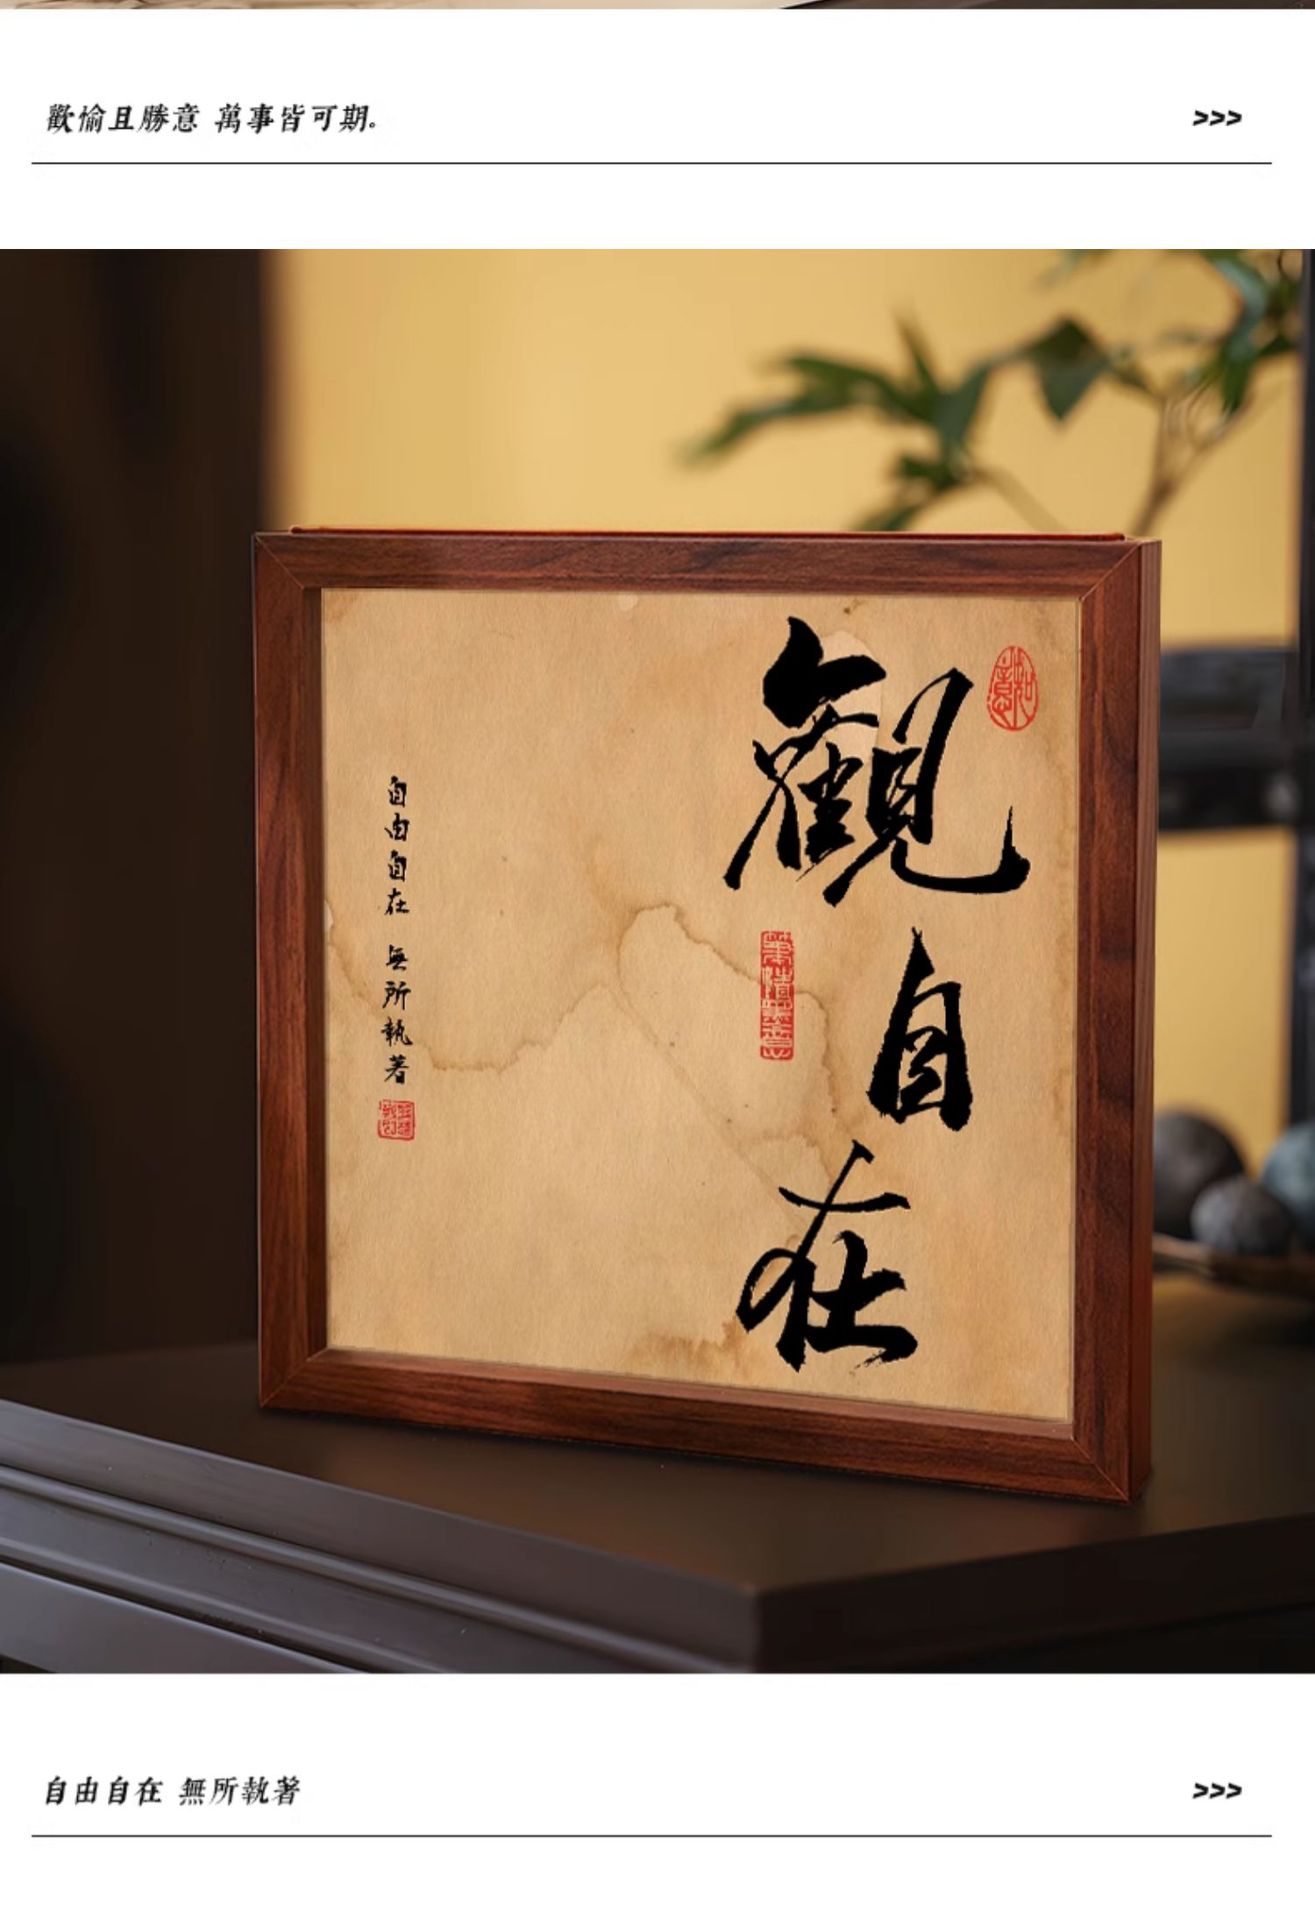 歡愉且勝意 萬事皆可期。
>>>
觀自在
自由自在 無所執著
自由自在 無所執著
>>>